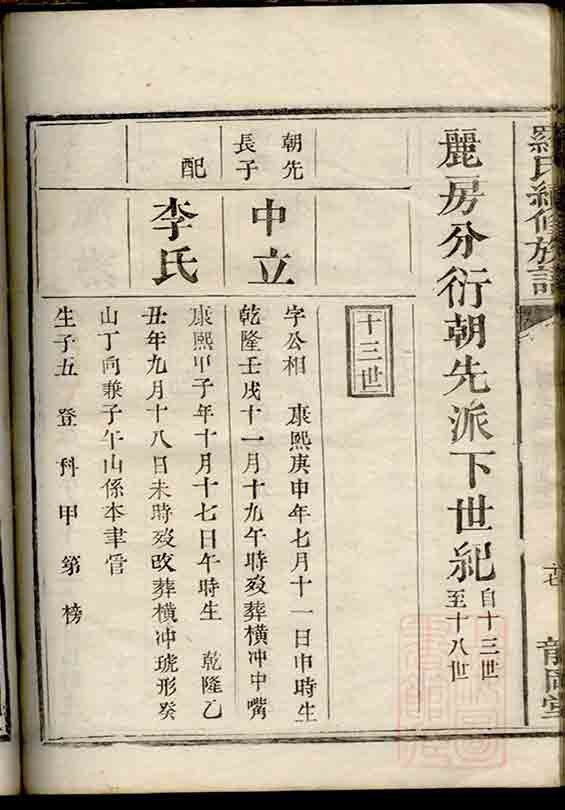 羅氏續修族譜
麗房分衍朝先派下世紀 自十三世至十八世
十三世
朝先長子
中立
字公相 康熙庚申年七月十一日申時生
乾隆壬戌十一月十九午時歿葬橫冲中嘴
配
李氏
康熙甲子年十月十七日午時生 乾隆乙
丑年九月十八日未時歿改葬橫冲琥形癸
山丁向兼子午山係本聿管
生子五 登 科 甲 第 榜